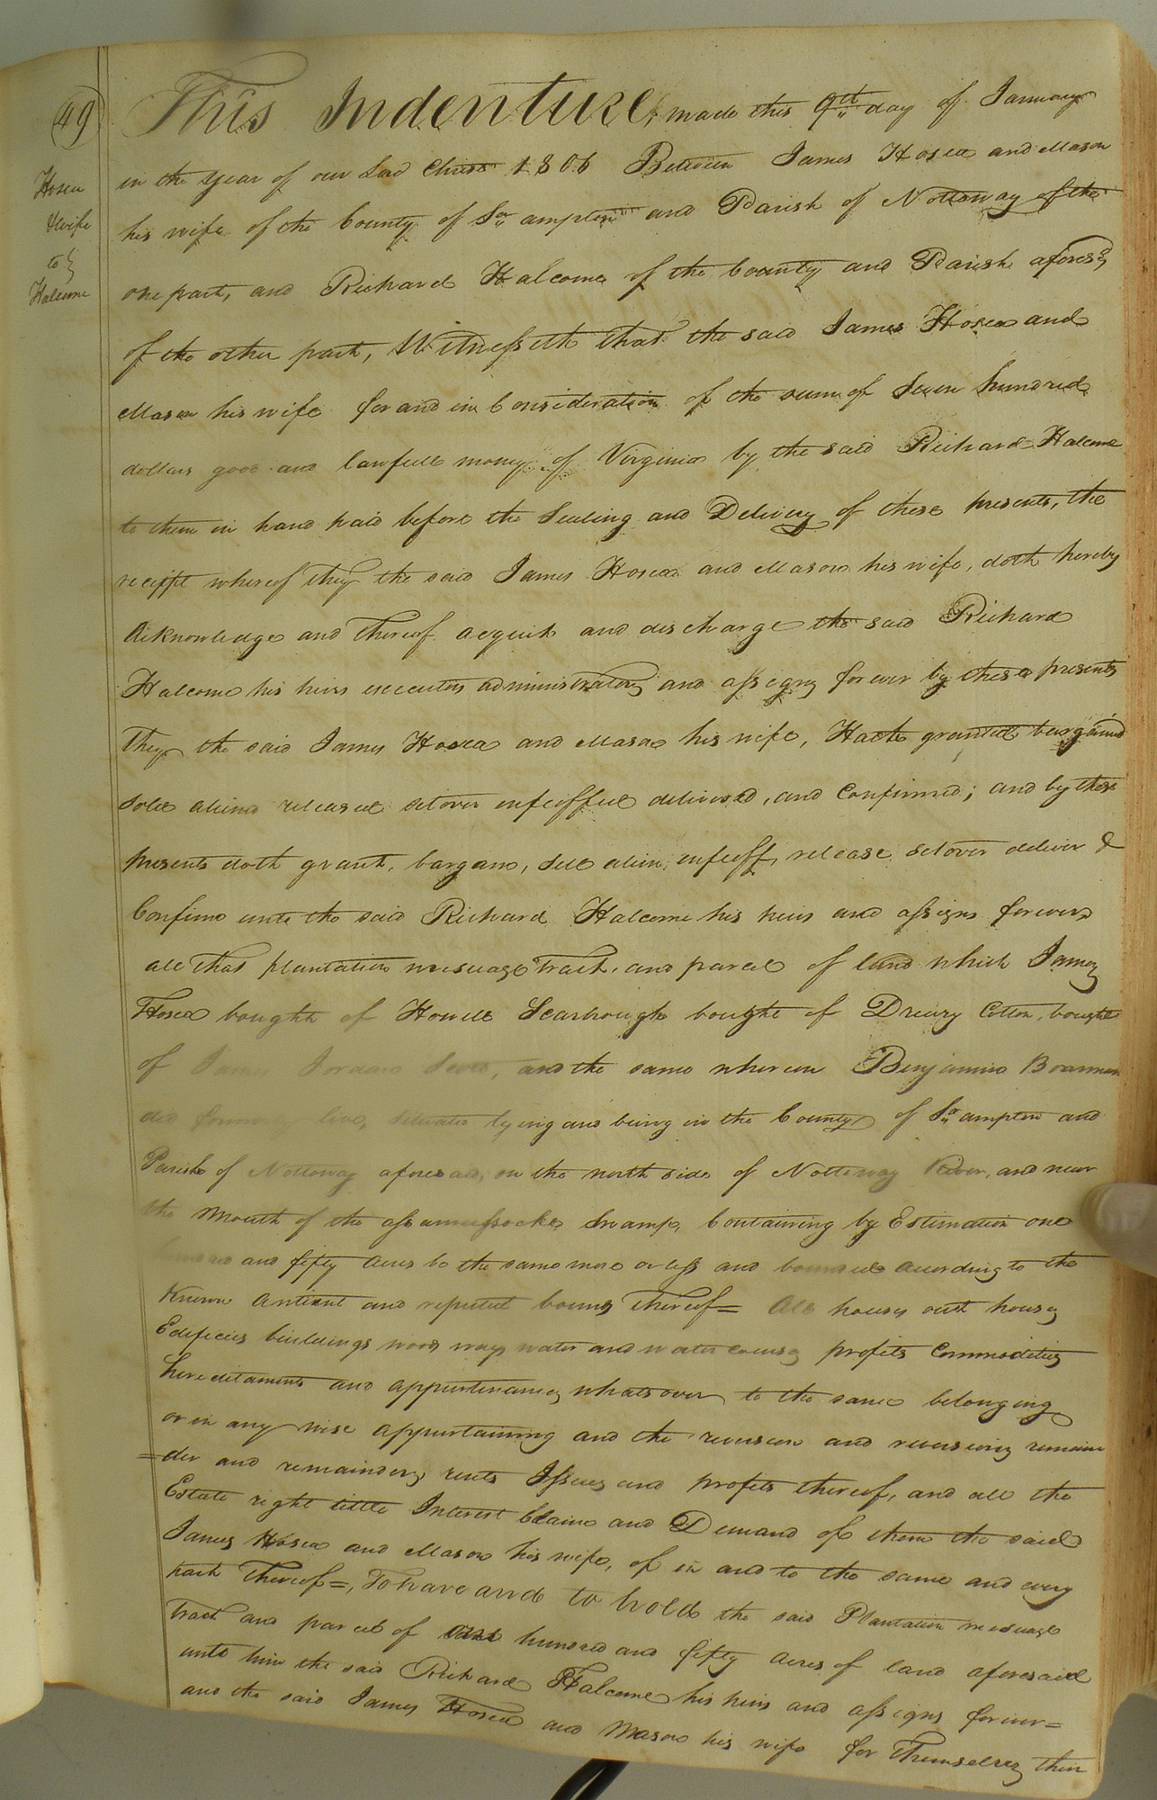 49
Hosea
& wife
to }
Halcome
This Indenture, made this 9th day of January
in the year of our Lord Christ 1806 Between James Hosea and Mason
his wife of the County of So. ampton and Parish of Nottoway of the
one part, and Richard Halcome of the County and Parish aforesd.
of the other part, Witnesseth that the said James Hosea and
Mason his wife for and in Consideration of the sum of Seven hundred
dollars good and lawfull money of Virginia by the said Richard Halcome
to them in hand paid before the Sealing and Delivery of these presents, the
receipt whereof they the said James Hosea and Mason his wife, doth hereby
Acknowledge and thereof acquit and discharge the said Richard
Halcome his heirs executors administrators and assigns forever by these presents
they the said James Hosea and Mason his wife, Hath granted bargained
sold aliend released setover enfeoffed delivered, and Confirmed; and by these
presents doth grant, bargain, sell alien, enfeoff, release, setover deliver &
Confirm unto the said Richard Halcome his heirs and assigns forever
all that plantation messuage tract, and parcel of land which James
Hosea bought of Howell Scarbrough bought of Drewry Cotton, bought
of James Jordan and the same wherein Benjamin Boarman
did formerly live, situate lying and being in the County of So. ampton and
Parish of Nottoway aforesaid, on the north side of Nottoway River, and near
the Mouth of the Assamussocke Swamp, Containing by Estimation one
hundred and fifty acres be the same more or less and bounded according to the
Known Antient and reputed bounds thereof= All houses out houses
Edifices buildings woods ways water and water courses profits Commodities
hereditaments and appurtenances whatsoever to the same belonging
or in any wise appurtaining and the revercion and revercions remain
=der and remainders rents Issues and profits thereof, and all the
Estate right tittle Interest Claim and Demand of them the said
James Hosea and Mason his wife, of in and to the same and every
part thereof=, To have and to hold the said Plantation messuage
tract and parcel of one hundred and fifty acres of land aforesaid
unto him the said Richard Halcome his heirs and assigns forever=
and the said James Hosea and Mason his wife for themselves their